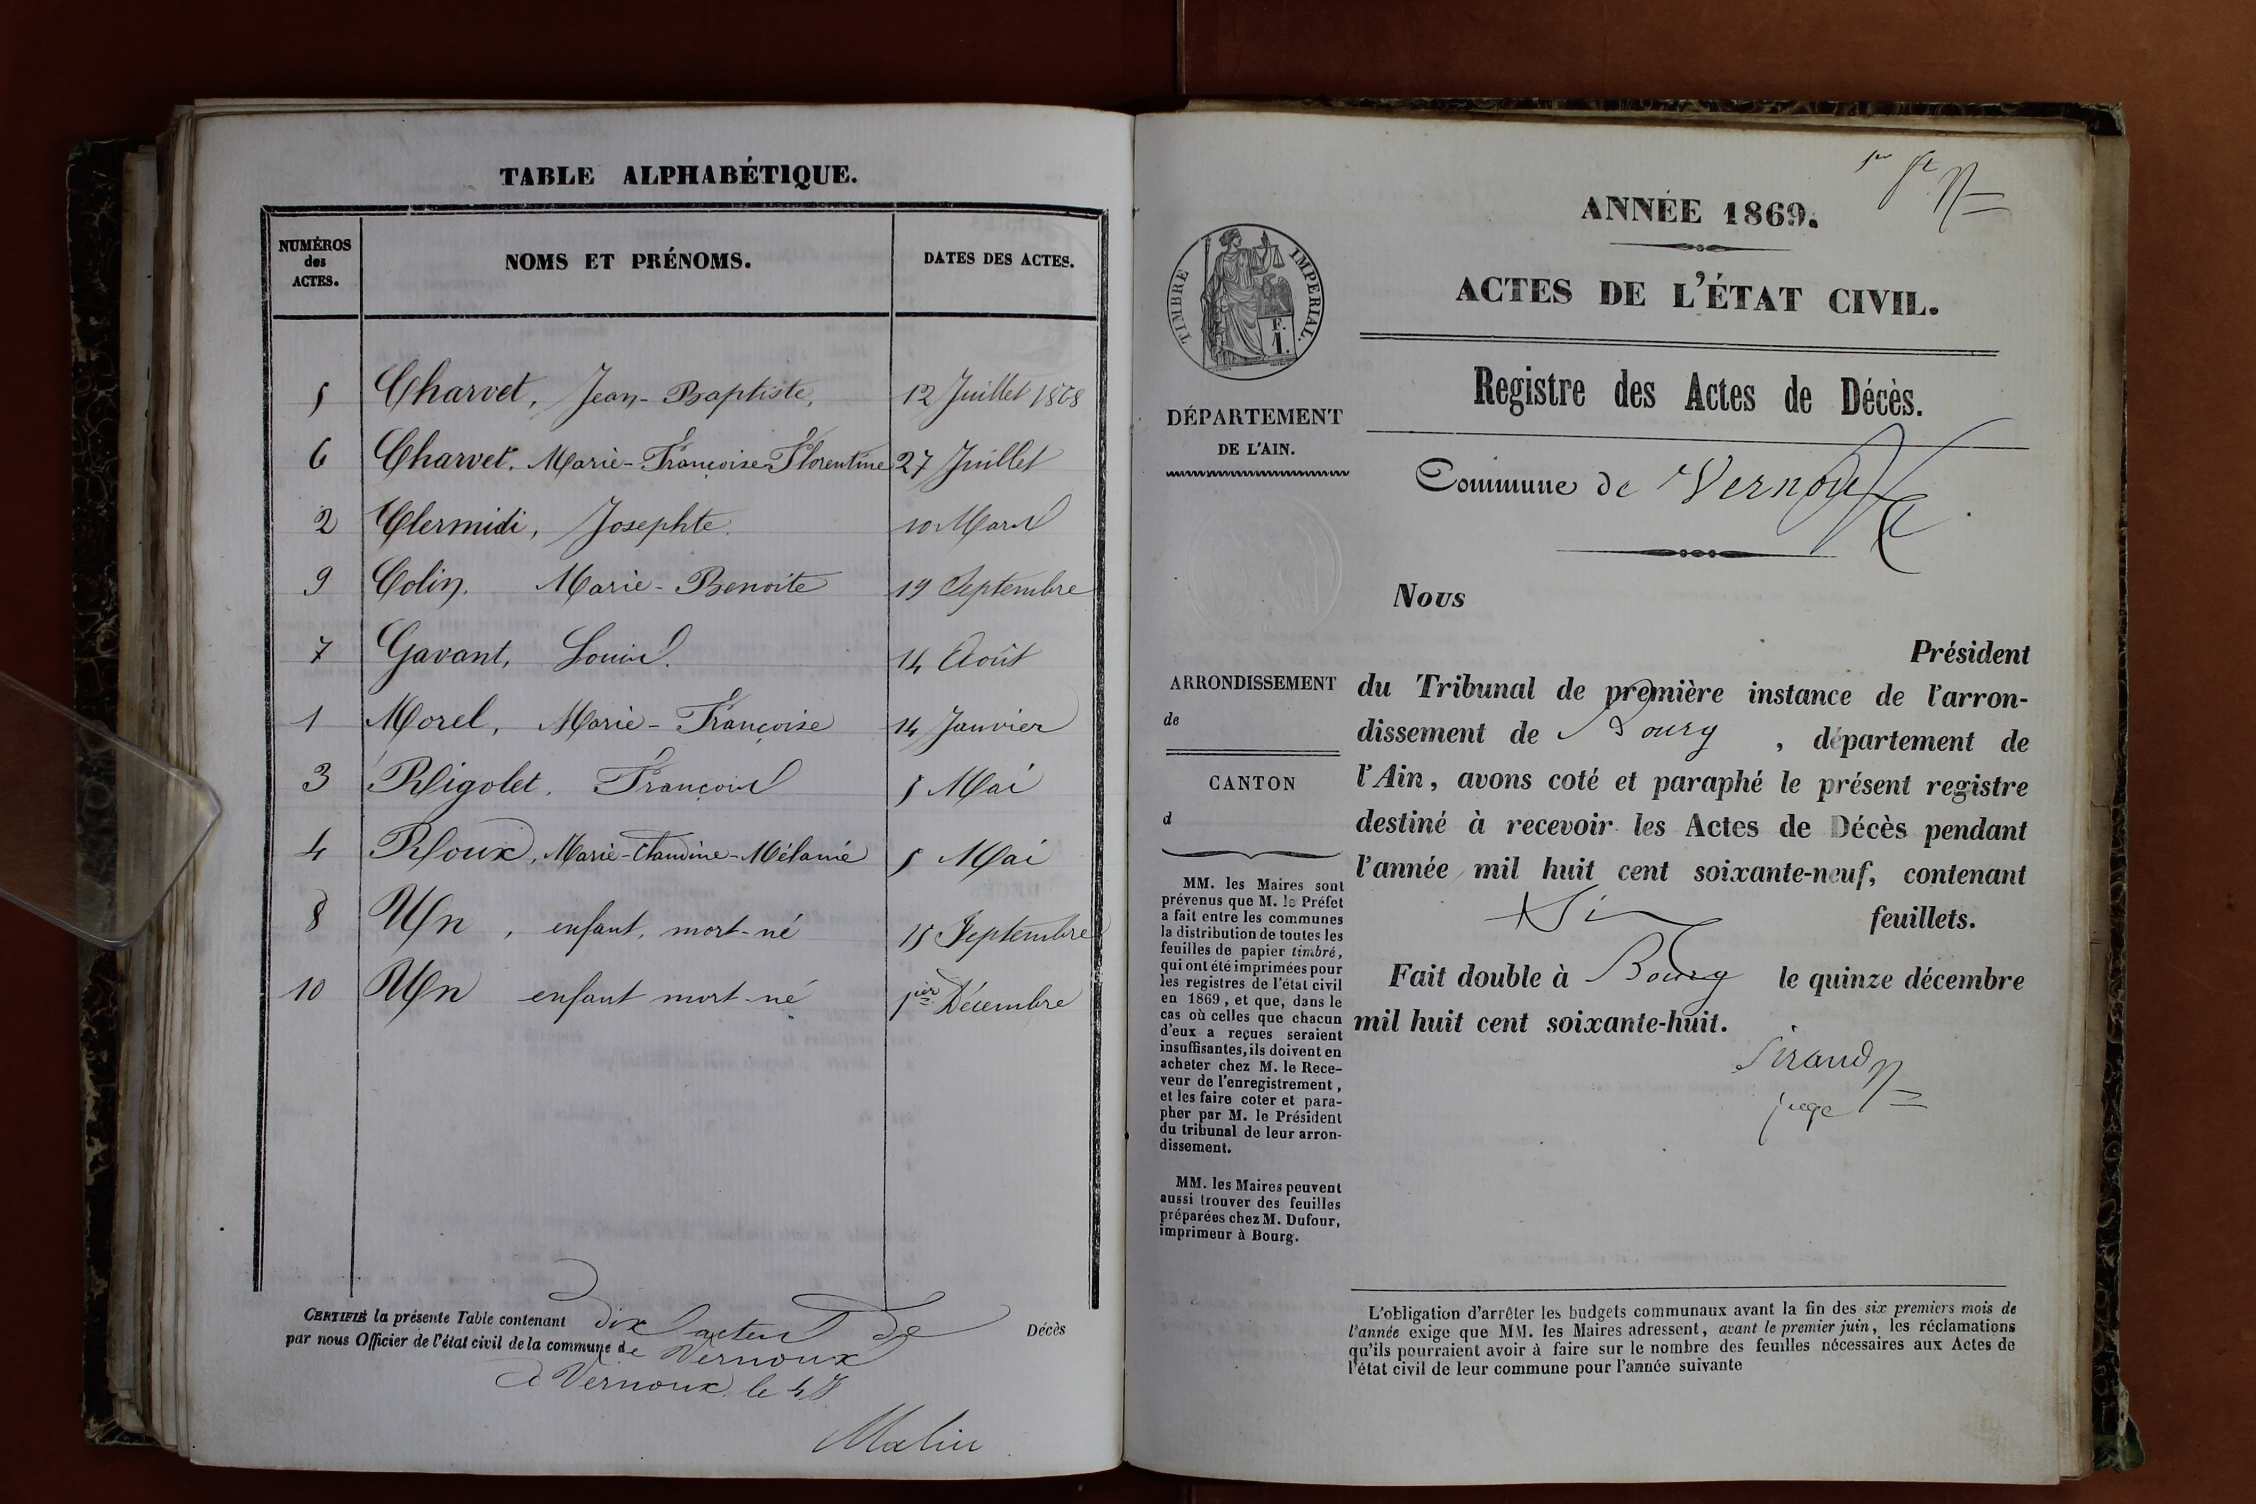 TABLE ALPHABÉTIQUE.
NUMÉROS des ACTES.
NOMS ET PRÉNOMS.
DATES DES ACTES.
5 Charvet, Jean-Baptiste, 12 Juillet 1868
6 Charvet, Marie-Françoise Florentine 27 Juillet
2 Clermidi, Josephte. 10 Mars
9 Colin. Marie-Benoite 19 Septembre
7 Gavant, Louis. 14 Août
1 Morel, Marie-Françoise 14 Janvier
3 Rigolet. François 5 Mai
4 Roux, Marie-Claudine-Mélanie 5 Mai
8 Un, enfant, mort-né 15 Septembre
10 Un enfant mort-né 1ier Décembre
CERTIFIÉ la présente Table contenant dix actes de Décès
par nous Officier de l'état civil de la commune de Vernoux
à Vernoux le
1er ft
ANNÉE 1869.
ACTES DE L'ÉTAT CIVIL.
TIMBRE IMPERIAL.
F.
1.
Registre des Actes de Décès.
DÉPARTEMENT
DE L'AIN.
Commune de Vernoux
Nous
Président
ARRONDISSEMENT
de
CANTON
d
du Tribunal de première instance de l'arron-
dissement de Bourg, département de
l'Ain, avons coté et paraphé le présent registre
destiné à recevoir les Actes de Décès pendant
l'année mil huit cent soixante-neuf, contenant
Six feuillets.
Fait double à Bourg le quinze décembre
mil huit cent soixante-huit.
Sirand
juge
MM. les Maires sont
prévenus que M. le Préfet
a fait entre les communes
la distribution de toutes les
feuilles de papier timbré,
qui ont été imprimées pour
les registres de l'état civil
en 1869, et que, dans le
cas où celles que chacun
d'eux a reçues seraient
insuffisantes, ils doivent en
acheter chez M. le Rece-
veur de l'enregistrement,
et les faire coter et para-
pher par M. le Président
du tribunal de leur arron-
dissement.
MM. les Maires peuvent
aussi trouver des feuilles
préparées chez M. Dufour,
imprimeur à Bourg.
L'obligation d'arrêter les budgets communaux avant la fin des six premiers mois de
l'année exige que MM. les Maires adressent, avant le premier juin, les réclamations
qu'ils pourraient avoir à faire sur le nombre des feuilles nécessaires aux Actes de
l'état civil de leur commune pour l'année suivante